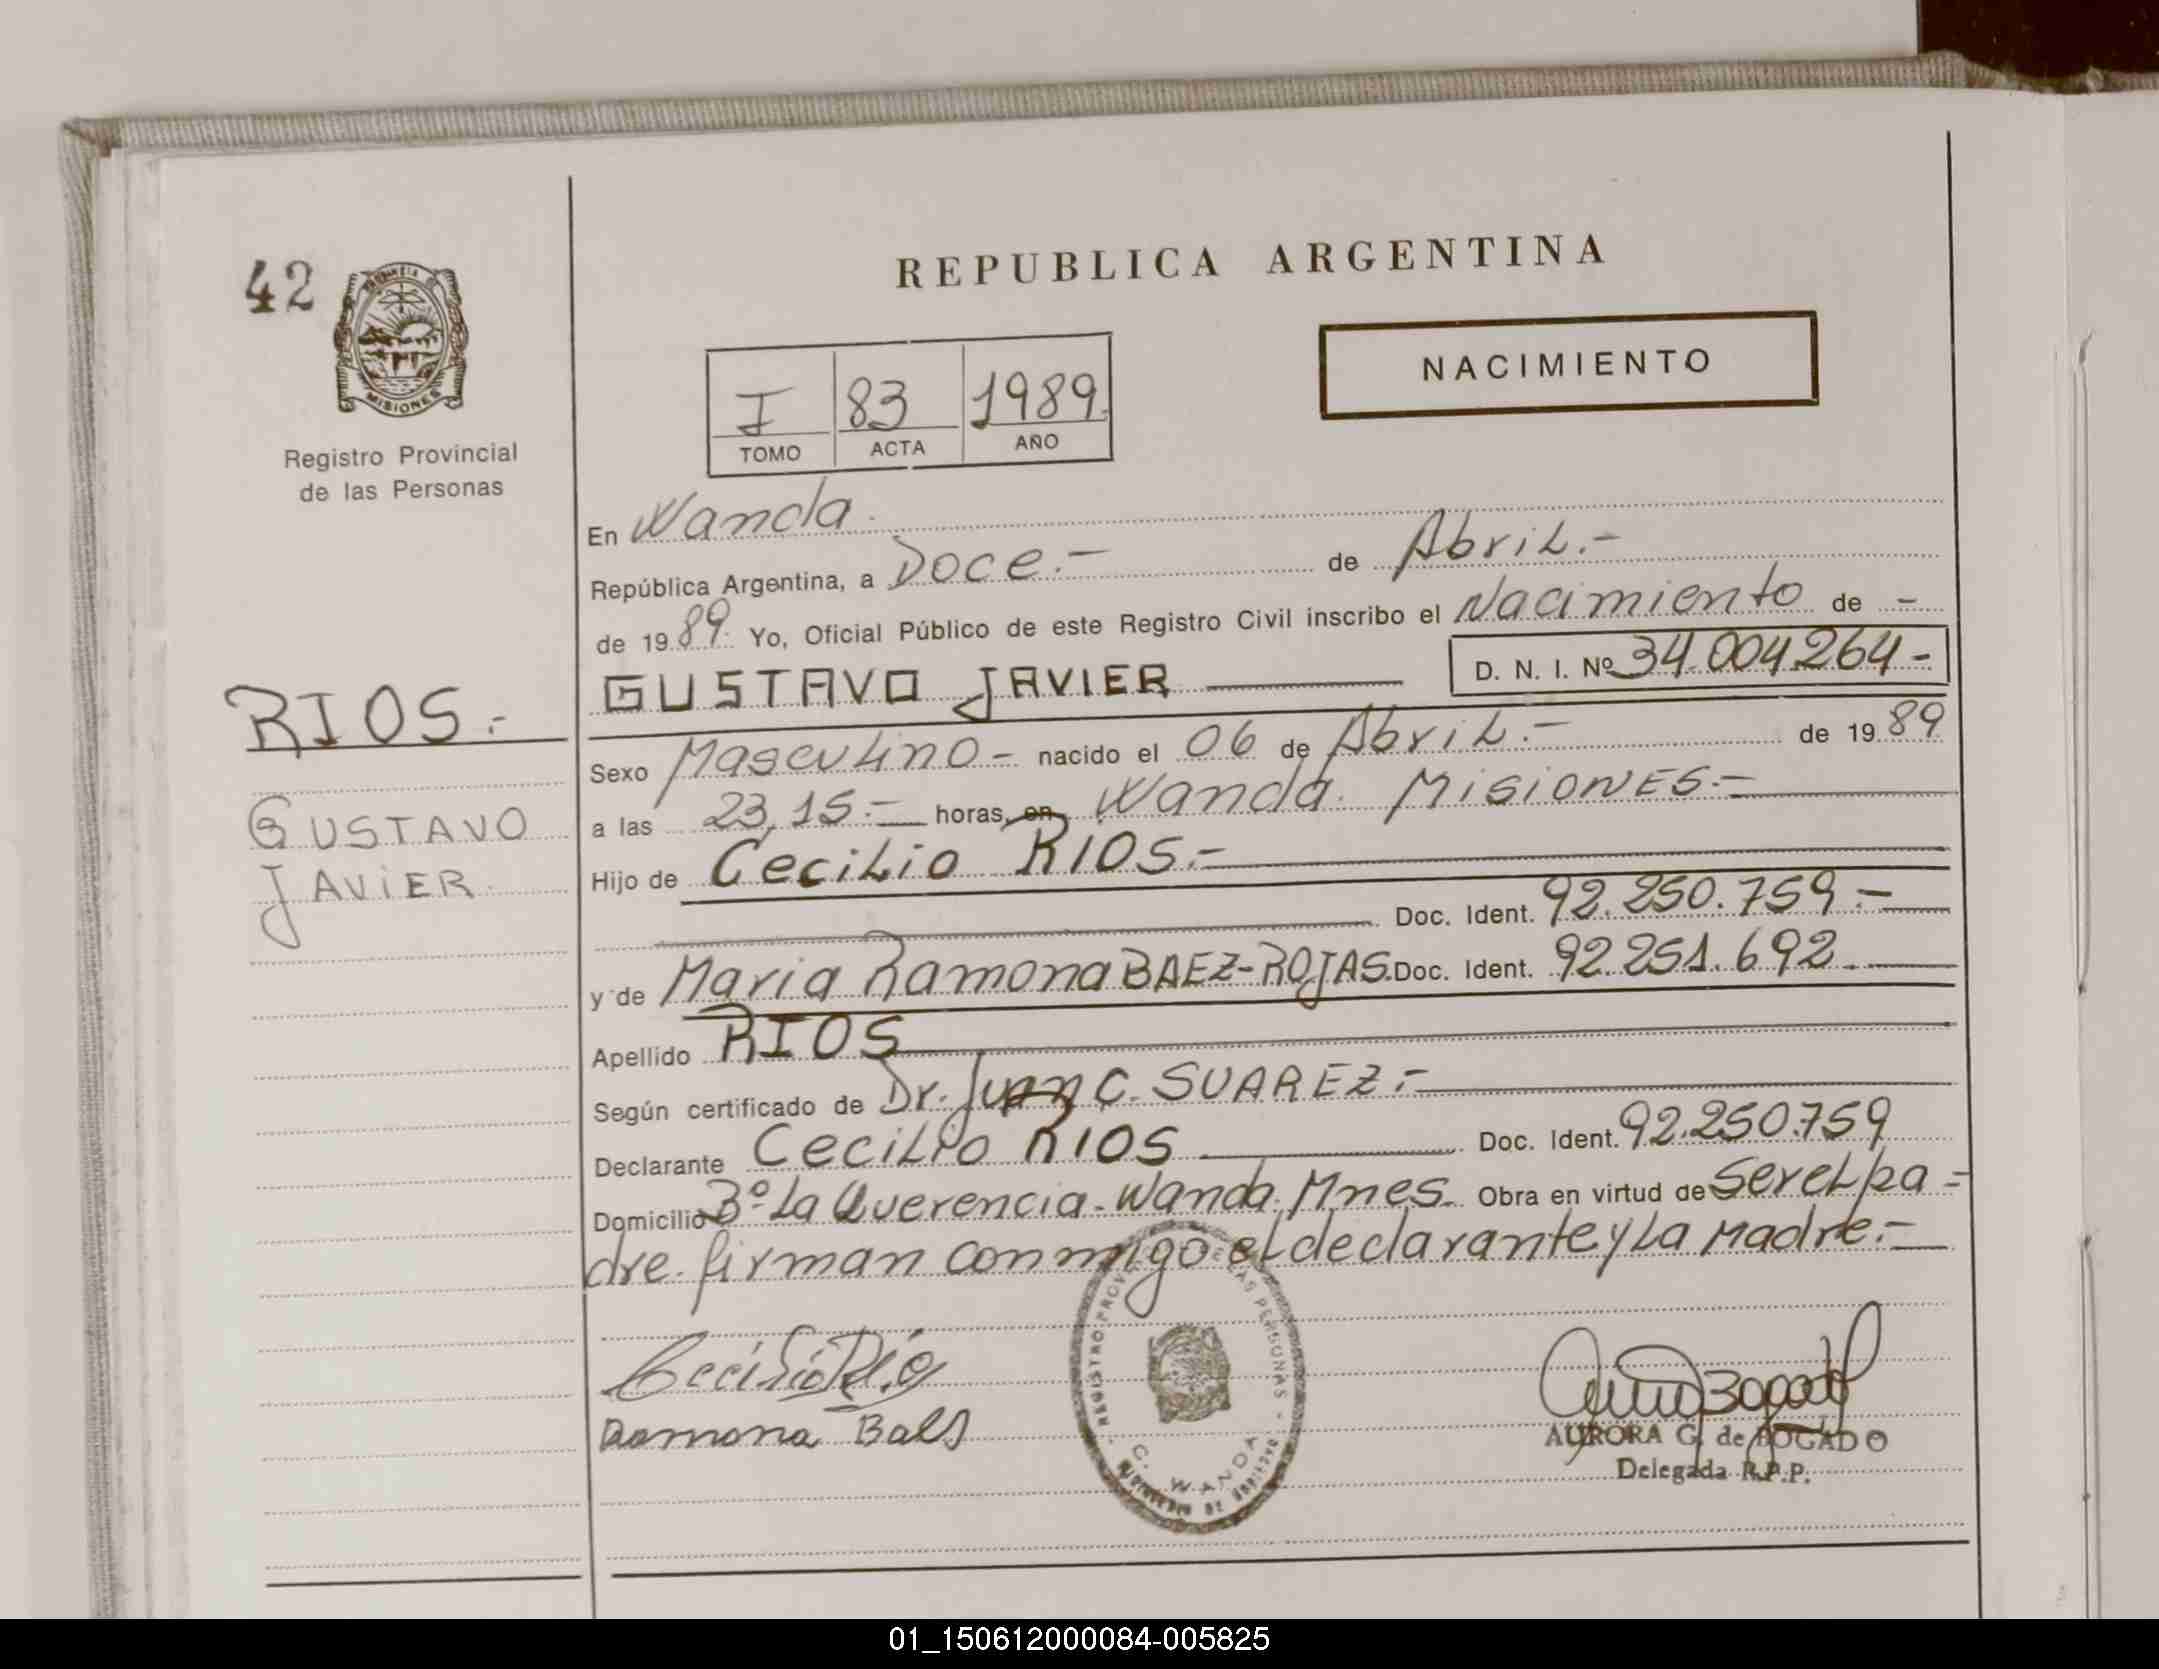 42
MISIONES
Registro Provincial
de las Personas
REPUBLICA ARGENTINA
NACIMIENTO
I 83 1989
TOMO ACTA AÑO
En Wanda.
República Argentina, a Doce.- de Abril.-
de 1989. Yo, Oficial Público de este Registro Civil inscribo el Nacimiento de -
D. N. I. Nº 34.004.264-
GUSTAVO JAVIER
RIOS.-
GUSTAVO
JAVIER.
Sexo Masculino- nacido el 06 de Abril.- de 1989
a las 23,15.- horas, en Wanda. MISIONES.-
Hijo de Cecilio RIOS.-
Doc. Ident. 92.250.759.-
y de Maria Ramona BAEZ-ROJAS. Doc. Ident. 92.251.692.
Apellido RIOS
Según certificado de Dr. Juan C. SUAREZ.-
Declarante Cecilio RIOS Doc. Ident. 92.250.759
Domicilio Bº La Querencia-Wanda. Mnes. Obra en virtud de Ser el pa=
dre. firman conmigo el declarante y La Madre.-
Cecilio Rio
Ramona Baes
REGISTRO PROV DE LAS PERSONAS
C. WANDA
AURORA G. de BOGADO
Delegada R.P.P.
01_150612000084-005825